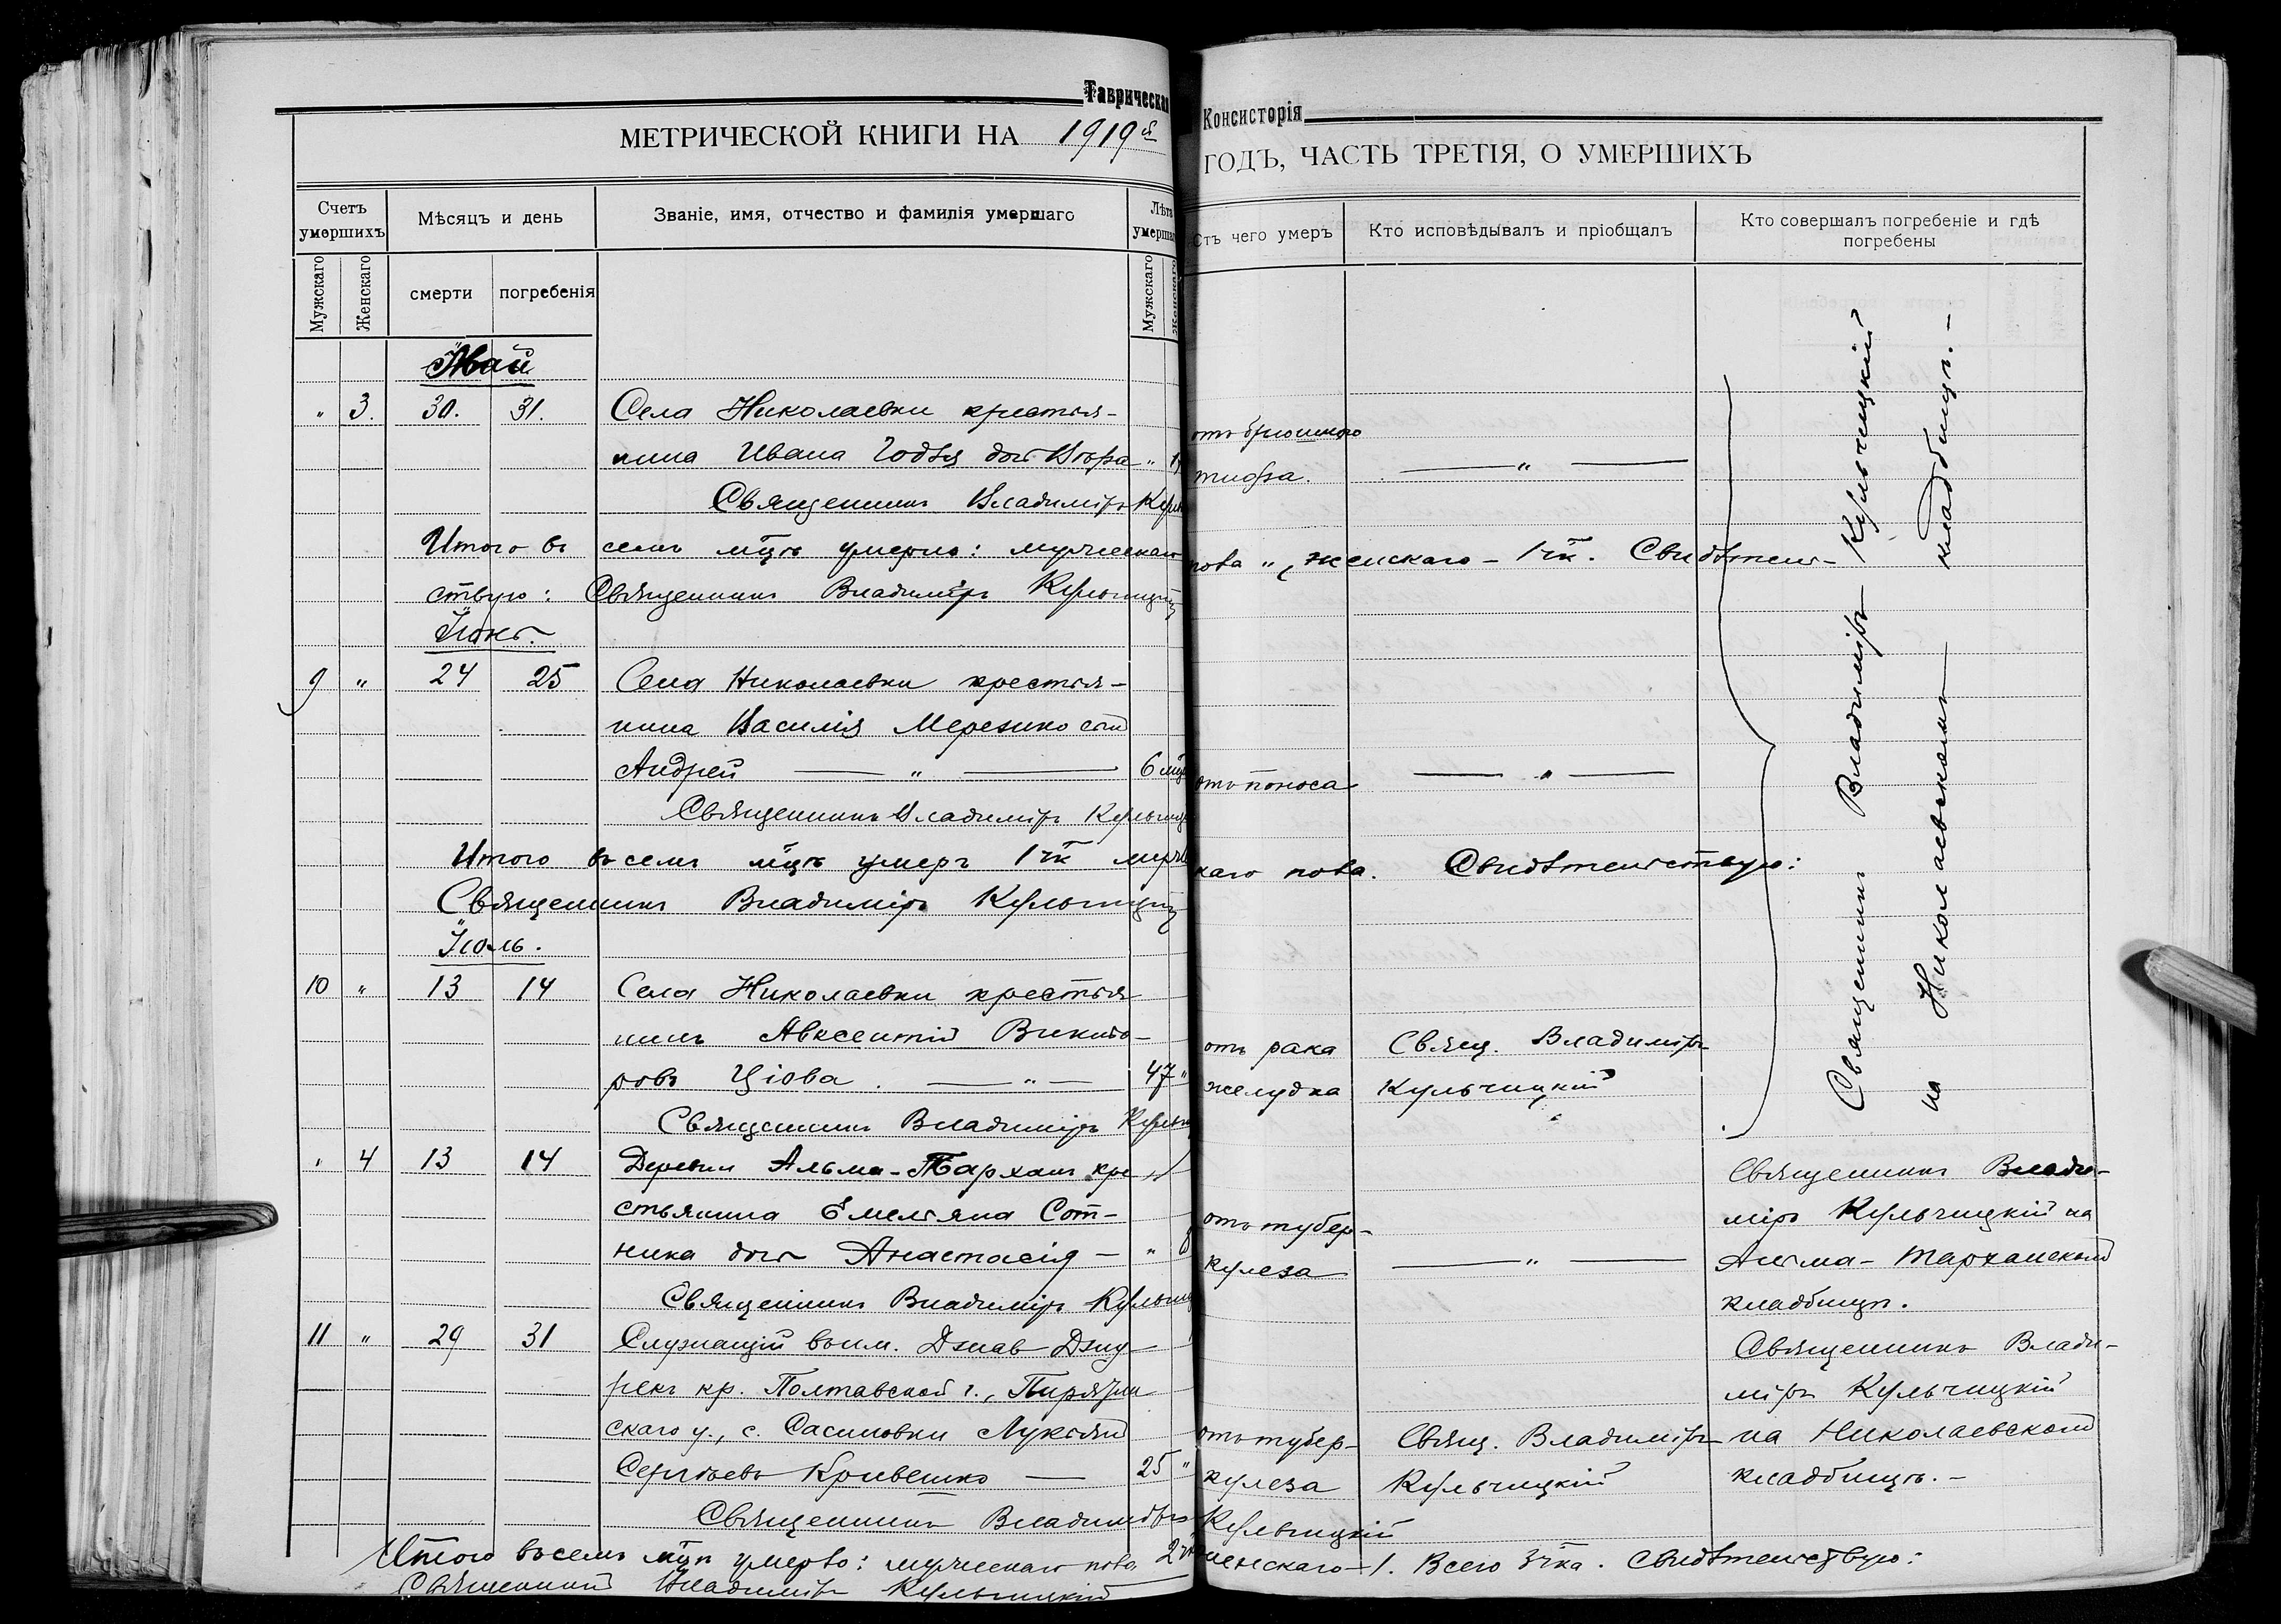 Таврическая Консисторія
МЕТРИЧЕСКОЙ КНИГИ НА 1919й ГОДЪ, ЧАСТЬ ТРЕТІЯ, О УМЕРШИХЪ
Счетъ умершихъ
Мѣсяцъ и день
Званіе, имя, отчество и фамилія умершаго
Лѣта умершаго
Отъ чего умеръ
Кто исповѣдывалъ и пріобщалъ
Кто совершалъ погребеніе и гдѣ погребены
Мужскаго
Женскаго
смерти
погребенія
Мужскаго
Женскаго
Май
" 3. 30. 31. Села Николаевки крестья-
нина Ивана дочь Вѣра " отъ брюшного
тифа. — " —
Священникъ Владиміръ
Итого въ семъ мцѣ умерло: мужескаго пола ", женскаго - 1 чк. Свидѣтель-
ствую: Священникъ Владиміръ Кульчицкій
Іюнь.
9 " 24 25 Села Николаевки крестья-
нина Василія Мерезико сынъ
Андрей — " — 6 мцѣ отъ поноса — " —
Священникъ Владиміръ Кульчиц
Итого въ семъ мцѣ умеръ 1 чк мужескаго пола. Свидѣтельствую:
Священникъ Владиміръ Кульчицкій
Іюль.
10 " 13 14 Села Николаевки крестья
нинъ Авксентій Викто-
ровъ Ціова. — " — 47 "
отъ рака
желудка
Свящ. Владиміръ
Кульчицкій
Священникъ Владиміръ Кульч
Священникъ Владиміръ Кульчицкій
на Николаевскомъ кладбищѣ. —
" 4 13 14 Деревни Альма-Тархан кре
стьянина Емельяна Сот-
ника дочь Анастасія — "
отъ тубер-
кулеза — " —
Священникъ Влади-
міръ Кульчицкій на
Альма-Тарханскомъ
кладбищѣ.
Священникъ Владиміръ Кульчиц
11 " 29 31 Служащій въ им. Джав Джу-
рекъ кр. Полтавской г., Пирятин
скаго у., с. Сасиновки Лукьянъ
Сергѣевъ Кривенко — 25 "
отъ тубер-
кулеза
Свящ. Владиміръ
Кульчицкій
Священникъ Влади-
міръ Кульчицкій
на Николаевскомъ
кладбищѣ. —
Священникъ Владиміръ Кульчицкій
Итого въ семъ мцѣ умерло: мужескаго пола 2 женскаго - 1. Всего 3 чка. Свидѣтельствую:
Священникъ Владиміръ Кульчицкій